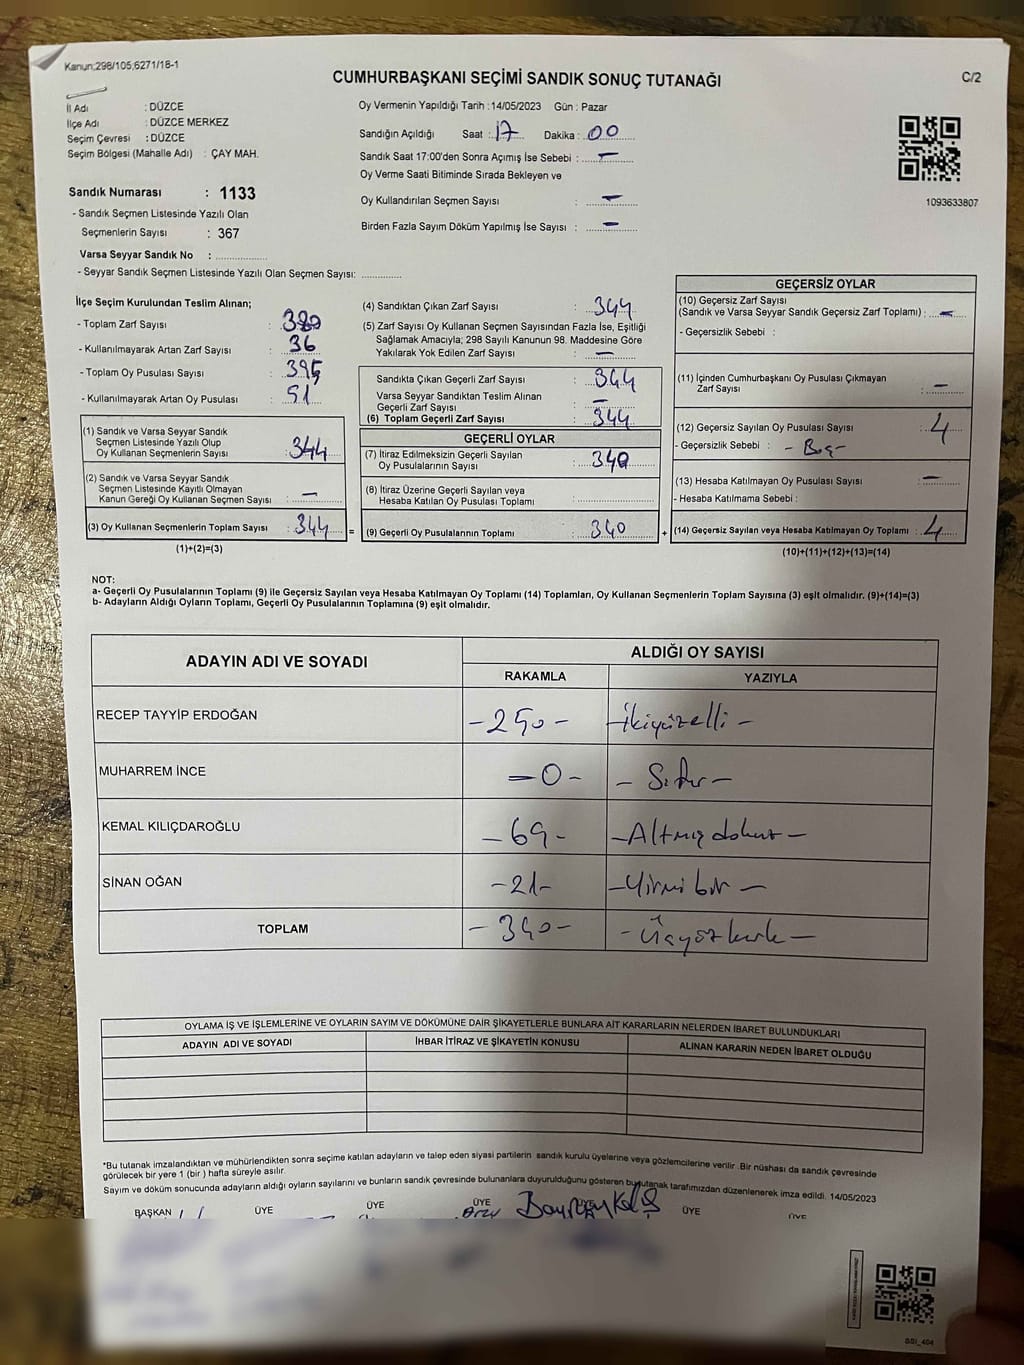 Kanun:298/105,6271/18-1
CUMHURBAŞKANI SEÇİMİ SANDIK SONUÇ TUTANAĞI
C/2
İl Adı : DÜZCE
İlçe Adı : DÜZCE MERKEZ
Seçim Çevresi : DÜZCE
Seçim Bölgesi (Mahalle Adı) : ÇAY MAH.
Oy Vermenin Yapıldığı Tarih :14/05/2023 Gün : Pazar
Sandığın Açıldığı Saat : 17 Dakika : 00
Sandık Saat 17:00'den Sonra Açımış İse Sebebi : —
Oy Verme Saati Bitiminde Sırada Bekleyen ve
Oy Kullandırılan Seçmen Sayısı : —
Birden Fazla Sayım Döküm Yapılmış İse Sayısı : —
1093633807
Sandık Numarası : 1133
- Sandık Seçmen Listesinde Yazılı Olan
Seçmenlerin Sayısı : 367
Varsa Seyyar Sandık No :
- Seyyar Sandık Seçmen Listesinde Yazılı Olan Seçmen Sayısı:
İlçe Seçim Kurulundan Teslim Alınan;
- Toplam Zarf Sayısı : 380
- Kullanılmayarak Artan Zarf Sayısı : 36
- Toplam Oy Pusulası Sayısı : 395
- Kullanılmayarak Artan Oy Pusulası : 51
(1) Sandık ve Varsa Seyyar Sandık
Seçmen Listesinde Yazılı Olup
Oy Kullanan Seçmenlerin Sayısı : 344
(2) Sandık ve Varsa Seyyar Sandık
Seçmen Listesinde Kayıtlı Olmayan
Kanun Gereği Oy Kullanan Seçmen Sayısı : —
(3) Oy Kullanan Seçmenlerin Toplam Sayısı : 344 =
(1)+(2)=(3)
(4) Sandıktan Çıkan Zarf Sayısı : 344
(5) Zarf Sayısı Oy Kullanan Seçmen Sayısından Fazla İse, Eşitliği
Sağlamak Amacıyla; 298 Sayılı Kanunun 98. Maddesine Göre
Yakılarak Yok Edilen Zarf Sayısı : —
Sandıkta Çıkan Geçerli Zarf Sayısı : 344
Varsa Seyyar Sandıktan Teslim Alınan
Geçerli Zarf Sayısı : —
(6) Toplam Geçerli Zarf Sayısı : 344
GEÇERLİ OYLAR
(7) İtiraz Edilmeksizin Geçerli Sayılan
Oy Pusulalarının Sayısı : 340
(8) İtiraz Üzerine Geçerli Sayılan veya
Hesaba Katılan Oy Pusulası Toplamı :
(9) Geçerli Oy Pusulalarının Toplamı : 340 +
GEÇERSİZ OYLAR
(10) Geçersiz Zarf Sayısı
(Sandık ve Varsa Seyyar Sandık Geçersiz Zarf Toplamı) : —
- Geçersizlik Sebebi :
(11) İçinden Cumhurbaşkanı Oy Pusulası Çıkmayan
Zarf Sayısı : —
(12) Geçersiz Sayılan Oy Pusulası Sayısı : 4
- Geçersizlik Sebebi : - Boş -
(13) Hesaba Katılmayan Oy Pusulası Sayısı : —
- Hesaba Katılmama Sebebi :
(14) Geçersiz Sayılan veya Hesaba Katılmayan Oy Toplamı : 4
(10)+(11)+(12)+(13)=(14)
NOT:
a- Geçerli Oy Pusulalarının Toplamı (9) ile Geçersiz Sayılan veya Hesaba Katılmayan Oy Toplamı (14) Toplamları, Oy Kullanan Seçmenlerin Toplam Sayısına (3) eşit olmalıdır. (9)+(14)=(3)
b- Adayların Aldığı Oyların Toplamı, Geçerli Oy Pusulalarının Toplamına (9) eşit olmalıdır.
ADAYIN ADI VE SOYADI
ALDIĞI OY SAYISI
RAKAMLA YAZIYLA
RECEP TAYYİP ERDOĞAN -250- -ikiyüzelli-
MUHARREM İNCE -0- -Sıfır-
KEMAL KILIÇDAROĞLU -69- -Altmış dokuz-
SİNAN OĞAN -21- -Yirmi bir-
TOPLAM -340- -Üçyüz kırk-
OYLAMA İŞ VE İŞLEMLERİNE VE OYLARIN SAYIM VE DÖKÜMÜNE DAİR ŞİKAYETLERLE BUNLARA AİT KARARLARIN NELERDEN İBARET BULUNDUKLARI
ADAYIN ADI VE SOYADI İHBAR İTİRAZ VE ŞİKAYETİN KONUSU ALINAN KARARIN NEDEN İBARET OLDUĞU
*Bu tutanak imzalandıktan ve mühürlendikten sonra seçime katılan adayların ve talep eden siyasi partilerin sandık kurulu üyelerine veya gözlemcilerine verilir. Bir nüshası da sandık çevresinde
görülecek bir yere 1 (bir ) hafta süreyle asılır.
Sayım ve döküm sonucunda adayların aldığı oyların sayılarını ve bunların sandık çevresinde bulunanlara duyurulduğunu gösteren bu tutanak tarafımızdan düzenlenerek imza edildi. 14/05/2023
BAŞKAN ÜYE ÜYE ÜYE ÜYE ÜYE ÜYE